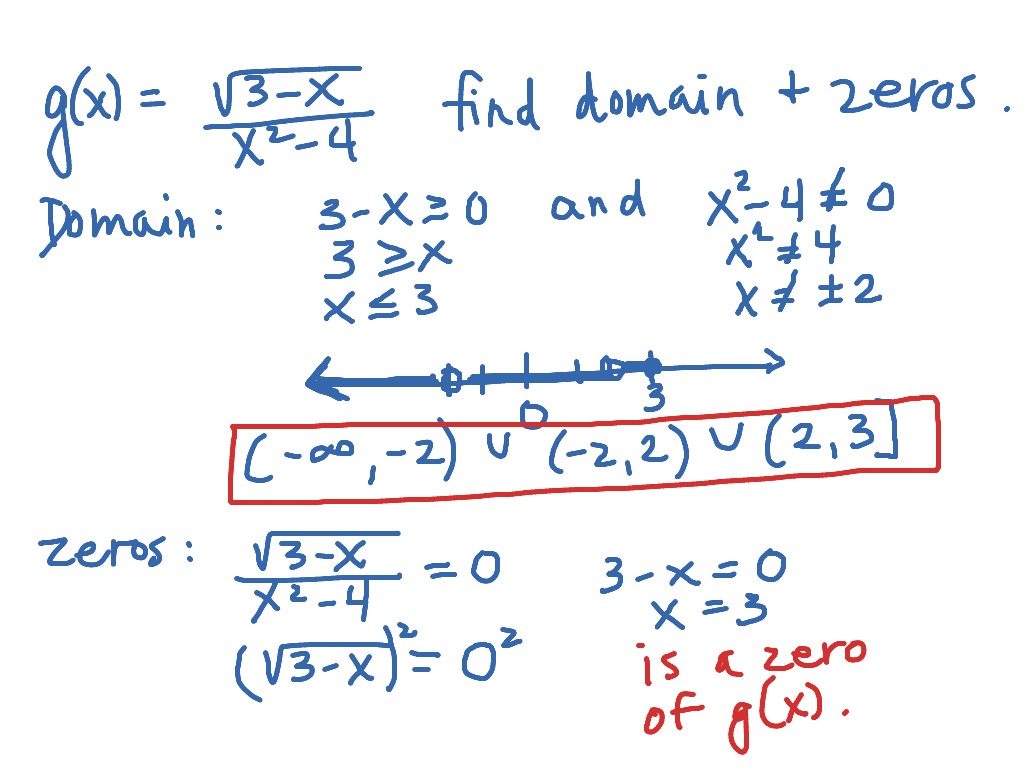 g(x) = √(3-x) / (x² - 4) find domain + zeros.
Domain: 3 - x ≥ 0 and x² - 4 ≠ 0
3 ≥ x x² ≠ 4
x ≤ 3 x ≠ ±2
0 3
(-∞, -2) ∪ (-2, 2) ∪ (2, 3]
zeros: √(3-x) / (x² - 4) = 0 3 - x = 0
x = 3
(√(3-x))² = 0²
is a zero
of g(x).